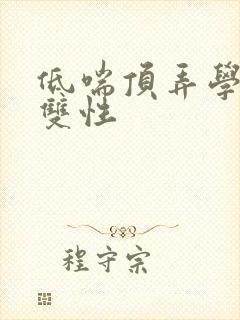 低喘頂弄學
雙性
程守宗